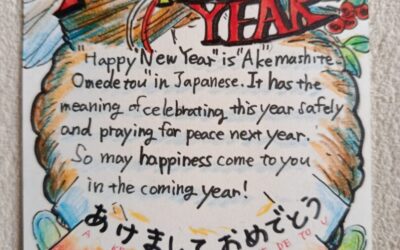 YEAR
"Happy New Year" is "Akemashite
Omedetou" in Japanese. It has the
meaning of celebrating this year safely
and praying for peace next year.
So may happiness come to you
in the coming year!
あけましておめでとう